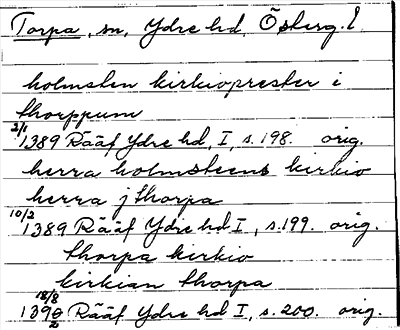 Torpa, sn, Ydre hd. Österg. l.
holmsten kirkioprester i
thorppum
2/1 1389 Rääf Ydre hd, I, s. 198. orig.
herra holmsteens kirkio
herra j thorpa
10/2 1389 Rääf Ydre hd I, s. 199. orig.
thorpa kirkio
kirkian thorpa
18/8 1392 Rääf Ydre hd I, s. 200. orig.